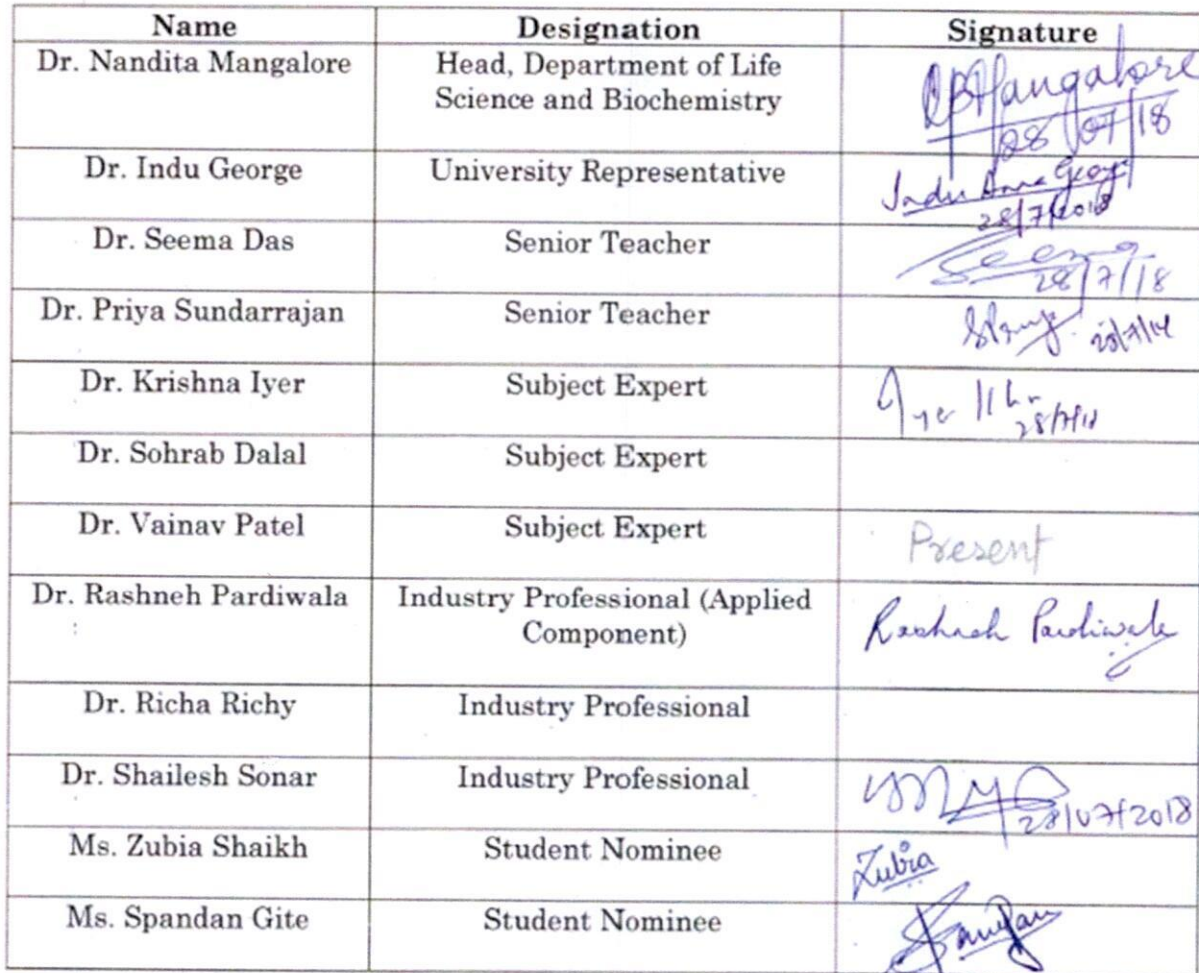 Name Designation Signature
Dr. Nandita Mangalore Head, Department of Life Mangalore
Science and Biochemistry 28/07/18
Dr. Indu George University Representative Indu Anna George
28/7/2018
Dr. Seema Das Senior Teacher Seema
28/7/18
Dr. Priya Sundarrajan Senior Teacher
Dr. Krishna Iyer Subject Expert Iyer
Dr. Sohrab Dalal Subject Expert
Dr. Vainav Patel Subject Expert Present
Dr. Rashneh Pardiwala Industry Professional (Applied Rashneh Pardiwala
Component)
Dr. Richa Richy Industry Professional
Dr. Shailesh Sonar Industry Professional
28/07/2018
Ms. Zubia Shaikh Student Nominee Zubia
Ms. Spandan Gite Student Nominee